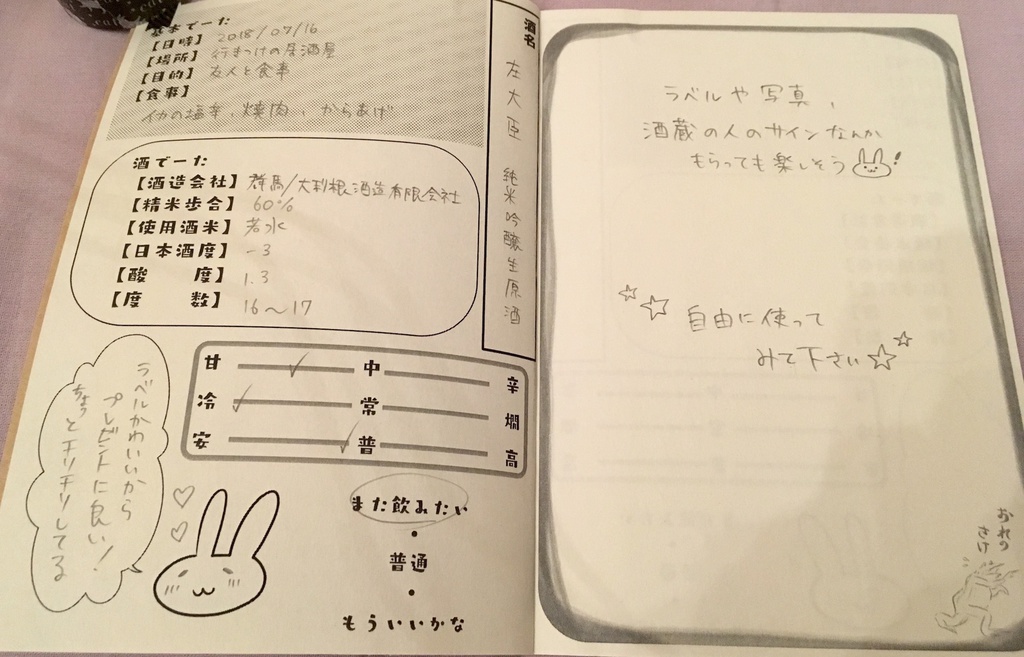 基本でーた
【日時】 2018/07/16
【場所】 行きつけの居酒屋
【目的】 友人と食事
【食事】
イカの塩辛、焼肉、からあげ
酒名
左大臣 純米吟醸生原酒
酒でーた
【酒造会社】 群馬/大利根酒造有限会社
【精米歩合】 60%
【使用酒米】 若水
【日本酒度】 -3
【酸 度】 1.3
【度 数】 16〜17
甘 中 辛
冷 常 燗
安 普 高
ラベルかわいいから
プレゼントに良い!
ちょっとチリチリしてる
また飲みたい
・
普通
・
もういいかな
ラベルや写真、
酒蔵の人のサインなんか
もらっても楽しそう!
自由に使って
みて下さい☆
おれの
さけ